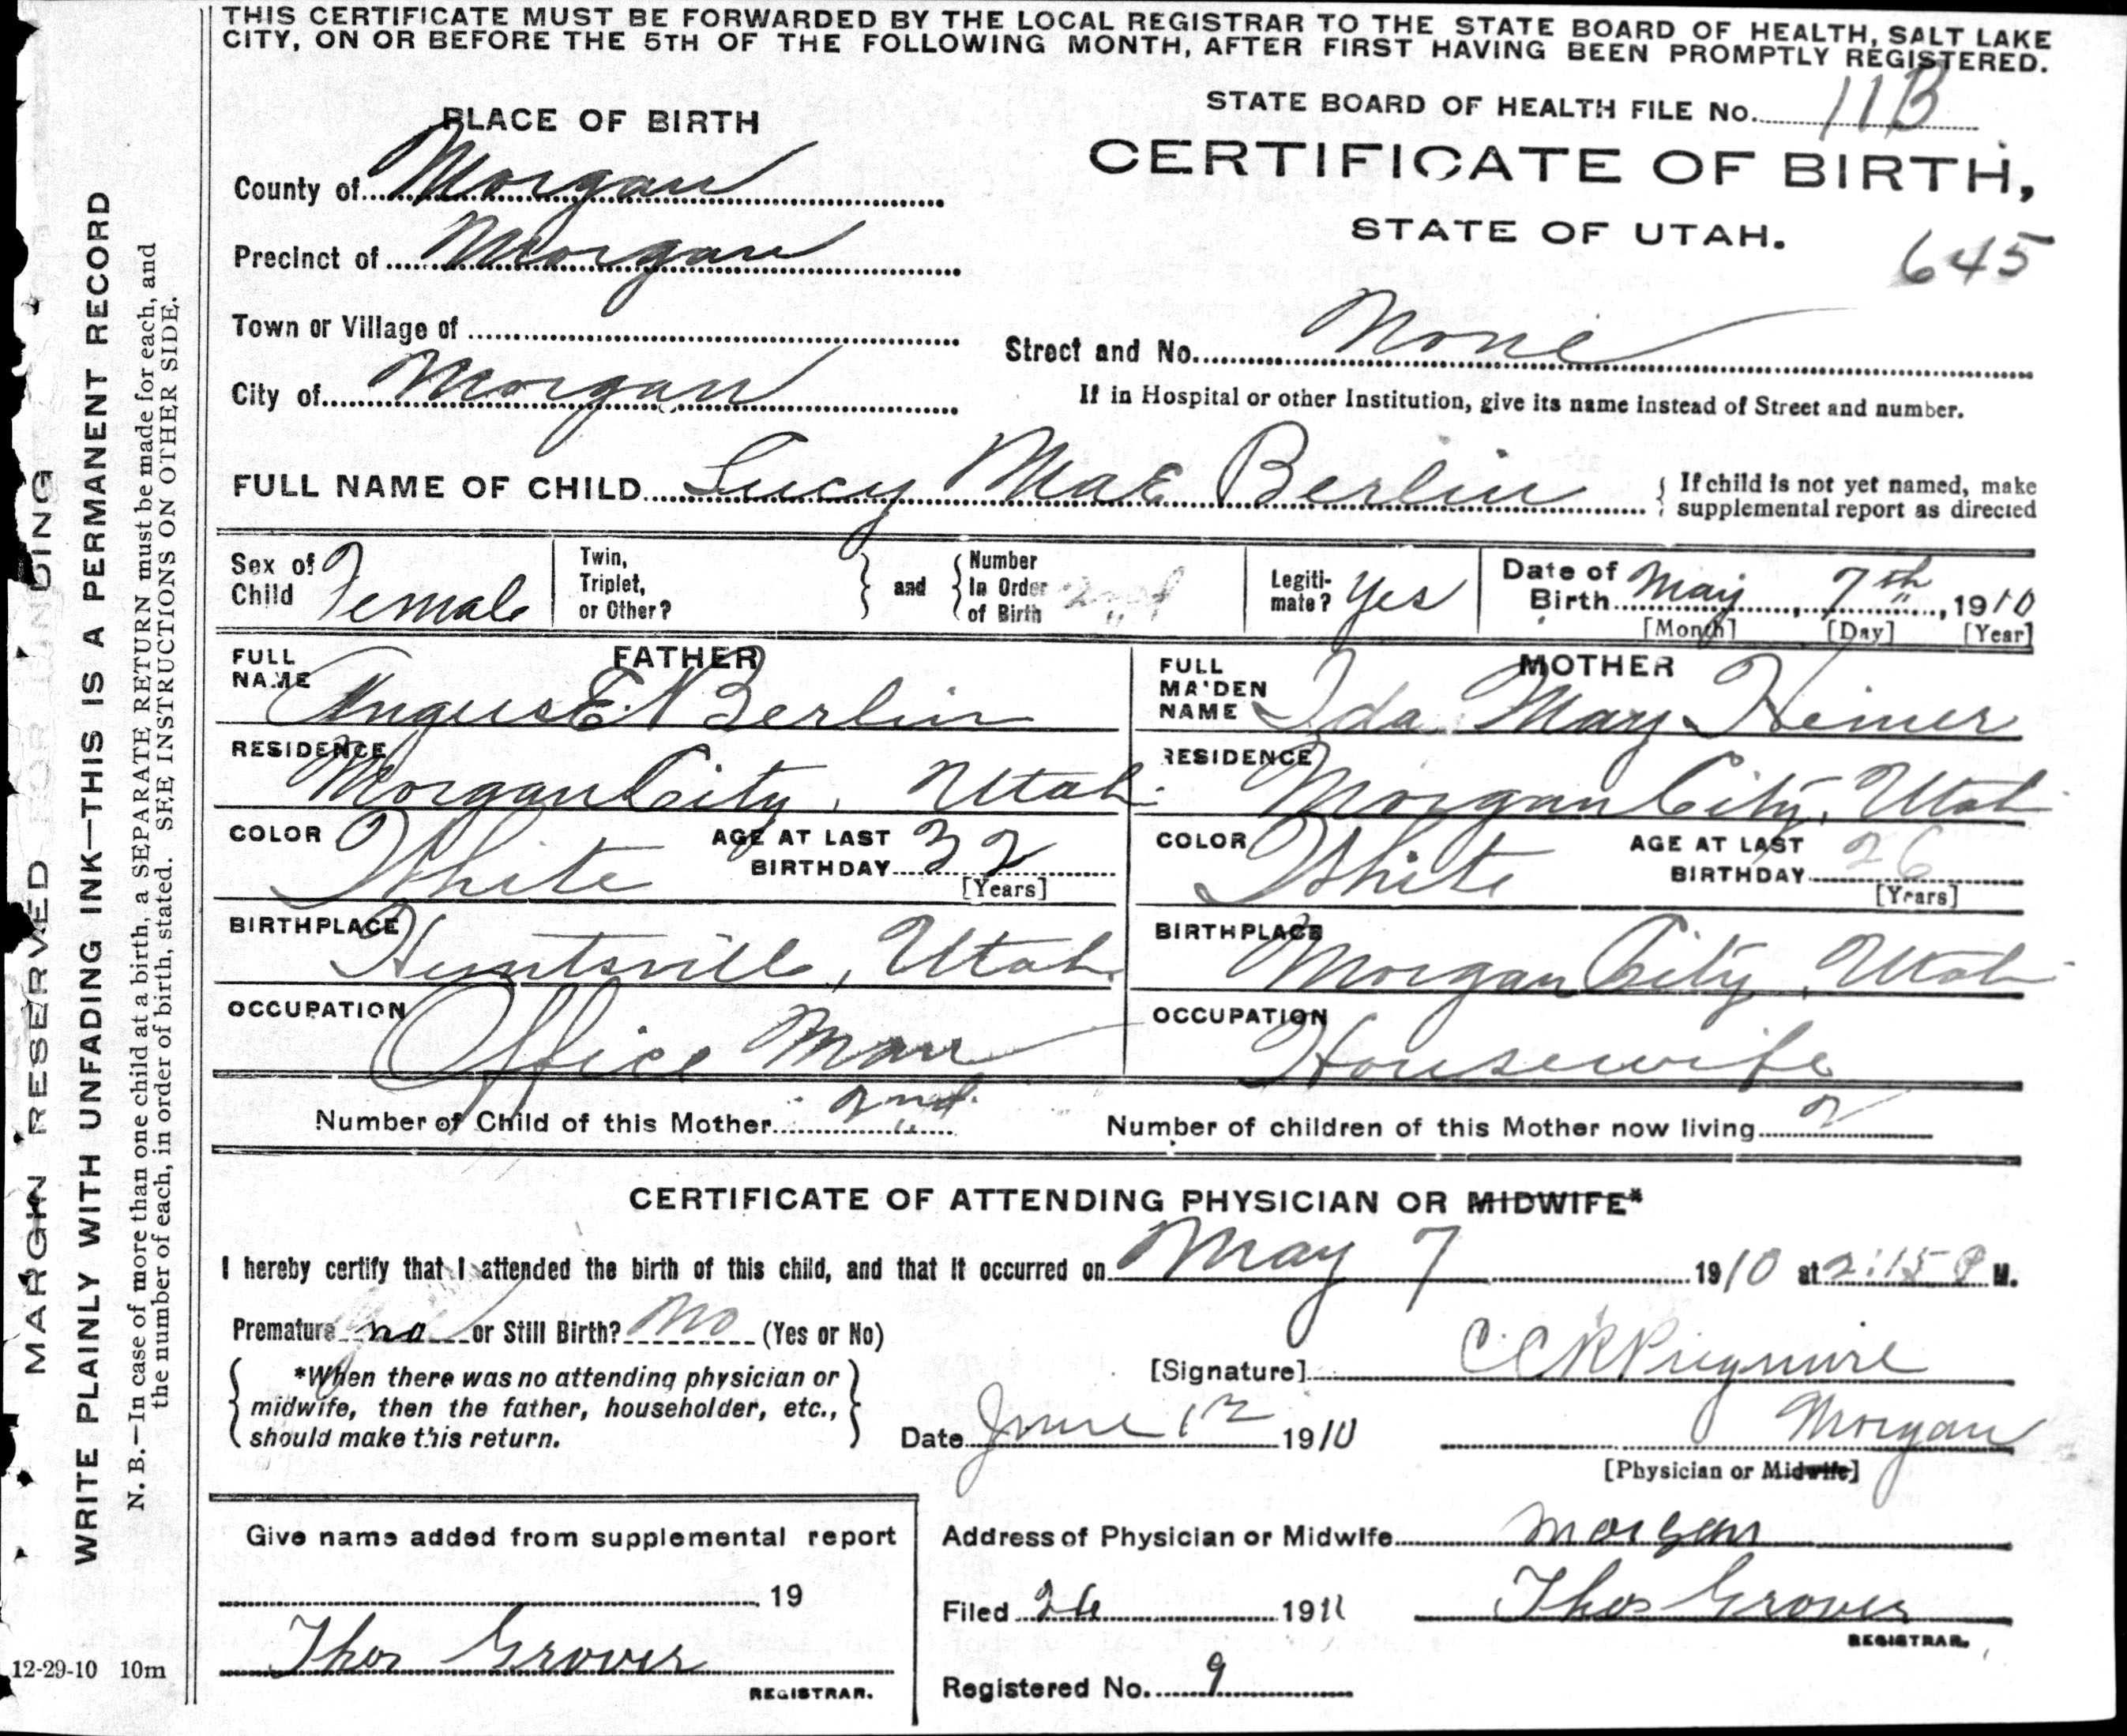 THIS CERTIFICATE MUST BE FORWARDED BY THE LOCAL REGISTRAR TO THE STATE BOARD OF HEALTH, SALT LAKE
CITY, ON OR BEFORE THE 5TH OF THE FOLLOWING MONTH, AFTER FIRST HAVING BEEN PROMPTLY REGISTERED.
STATE BOARD OF HEALTH FILE No. 11B
CERTIFICATE OF BIRTH,
STATE OF UTAH.
645
PLACE OF BIRTH
County of Morgan
Precinct of Morgan
Town or Village of
City of Morgan
Street and No. None
If in Hospital or other Institution, give its name instead of Street and number.
FULL NAME OF CHILD Lucy Mae Berlin
If child is not yet named, make
supplemental report as directed
Sex of Child Female
Twin, Triplet, or Other?
and
Number In Order of Birth 2nd
Legiti-mate? Yes
Date of Birth May, 7th, 1910
[Month] [Day] [Year]
FATHER
FULL NAME Angus E. Berlin
RESIDENCE Morgan City, Utah.
COLOR White
AGE AT LAST BIRTHDAY 32
[Years]
BIRTHPLACE Huntsville, Utah.
OCCUPATION Office Man
MOTHER
FULL MAIDEN NAME Ida May Heiner
RESIDENCE Morgan City, Utah
COLOR White
AGE AT LAST BIRTHDAY 26
[Years]
BIRTHPLACE Morgan City, Utah
OCCUPATION Housewife
Number of Child of this Mother 2nd.
Number of children of this Mother now living 2
CERTIFICATE OF ATTENDING PHYSICIAN OR MIDWIFE*
I hereby certify that I attended the birth of this child, and that it occurred on May 7 1910 at 2:15 P M.
Premature no or Still Birth? No (Yes or No)
*When there was no attending physician or
midwife, then the father, householder, etc.,
should make this return.
[Signature] C C R
Date June 12 1910
Morgan
[Physician or Midwife]
Give name added from supplemental report
19
Thos Grover
REGISTRAR.
Address of Physician or Midwife Morgan
Filed 26 1911
Thos Grover
REGISTRAR.
Registered No. 9
MARGIN RESERVED FOR BINDING
WRITE PLAINLY WITH UNFADING INK—THIS IS A PERMANENT RECORD
N. B.—In case of more than one child at a birth, a SEPARATE RETURN must be made for each, and
the number of each, in order of birth, stated. SEE INSTRUCTIONS ON OTHER SIDE.
12-29-10 10m